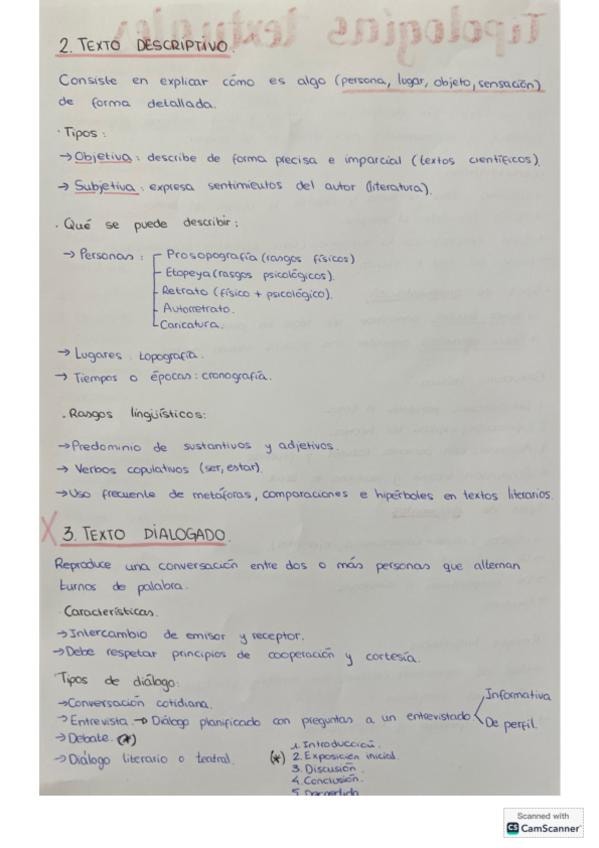 Tipologías textuales
2. TEXTO DESCRIPTIVO.
Consiste en explicar cómo es algo (persona, lugar, objeto, sensación)
de forma detallada.
· Tipos:
→ Objetiva: describe de forma precisa e imparcial (textos científicos).
→ Subjetiva: expresa sentimientos del autor (literatura).
· Qué se puede describir:
→ Personas: Prosopografía (rasgos físicos)
Etopeya (rasgos psicológicos).
Retrato (físico + psicológico).
Autorretrato.
Caricatura.
→ Lugares: topografía.
→ Tiempos o épocas: cronografía.
· Rasgos lingüísticos:
→ Predominio de sustantivos y adjetivos.
→ Verbos copulativos (ser, estar).
→ Uso frecuente de metáforas, comparaciones e hipérboles en textos literarios.
X 3. TEXTO DIALOGADO.
Reproduce una conversación entre dos o más personas que alternan
turnos de palabra.
· Características.
→ Intercambio de emisor y receptor.
→ Debe respetar principios de cooperación y cortesía.
Tipos de diálogo:
→ Conversación cotidiana.
→ Entrevista. → Diálogo planificado con preguntas a un entrevistado < Informativa
De perfil.
→ Debate. (*)
→ Diálogo literario o teatral.
(*) 1. Introducción.
2. Exposición inicial.
3. Discusión.
4. Conclusión.
5.
Scanned with
CS CamScanner